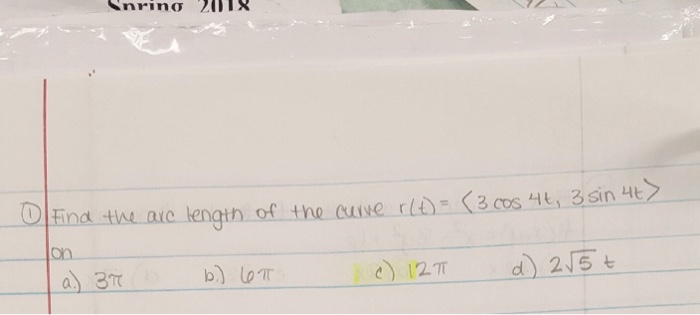 Spring 2018
① Find the arc length of the curve r(t) = ⟨3 cos 4t, 3 sin 4t⟩
on
a.) 3π b.) 6π c) 12π d) 2√5 t